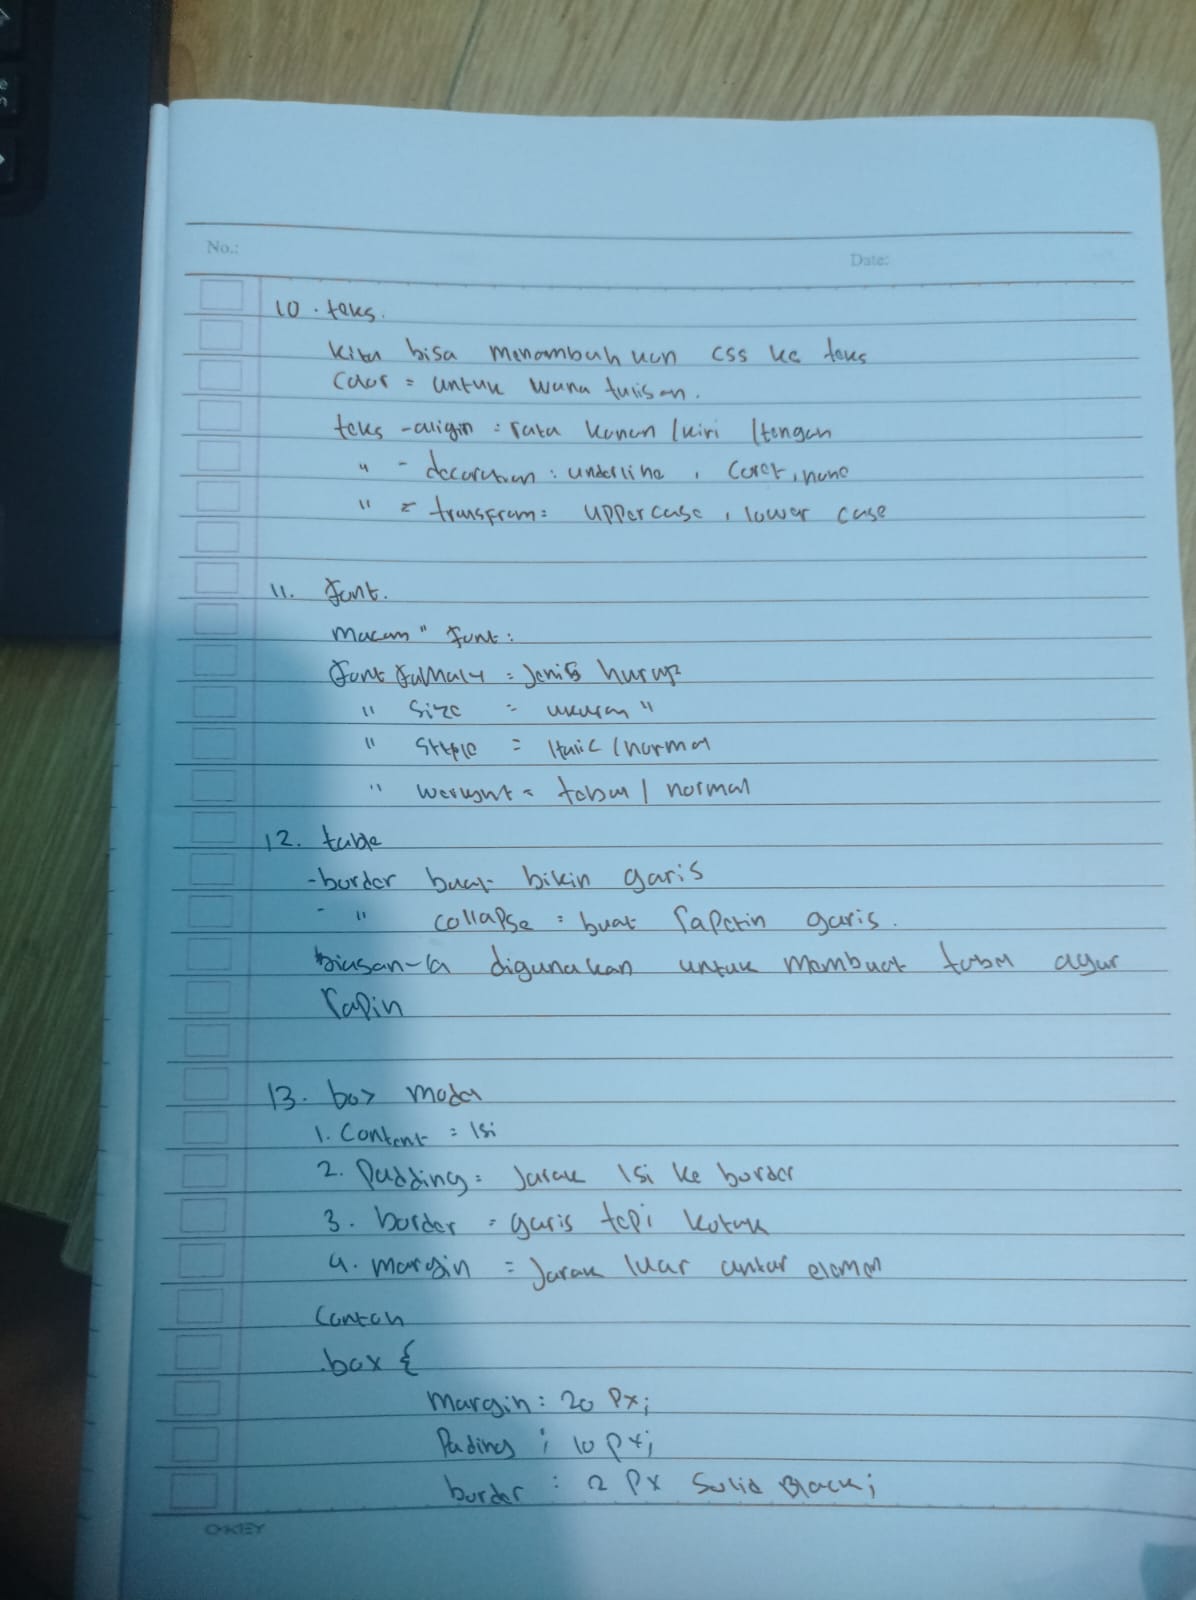 No.:
Date:
10. teks.
kita bisa menambahkan css ke teks
Color = untuk wana tulisan.
teks -aligin : rata kanan / kiri / tengah
" - decoration : underline , coret, none
" = transfrom : uppercase , lower case
11. font.
macam " font :
font = Jenis huruf
" Size = ukuran "
" = Italic / normal
" = tebal / normal
12. table
-border buat bikin garis
- " collapse = buat rapetin garis.
digunakan untuk membuat tabel agar
rapin
13. box model
1. Content = Isi
2. Padding = Jarak Isi ke border
3. border = garis tepi kotak
4. margin = Jarak luar antar elemen
Contoh
.box {
Margin : 20 Px;
Pading : 10 px;
border : 2 Px Solid Black;
OKEY